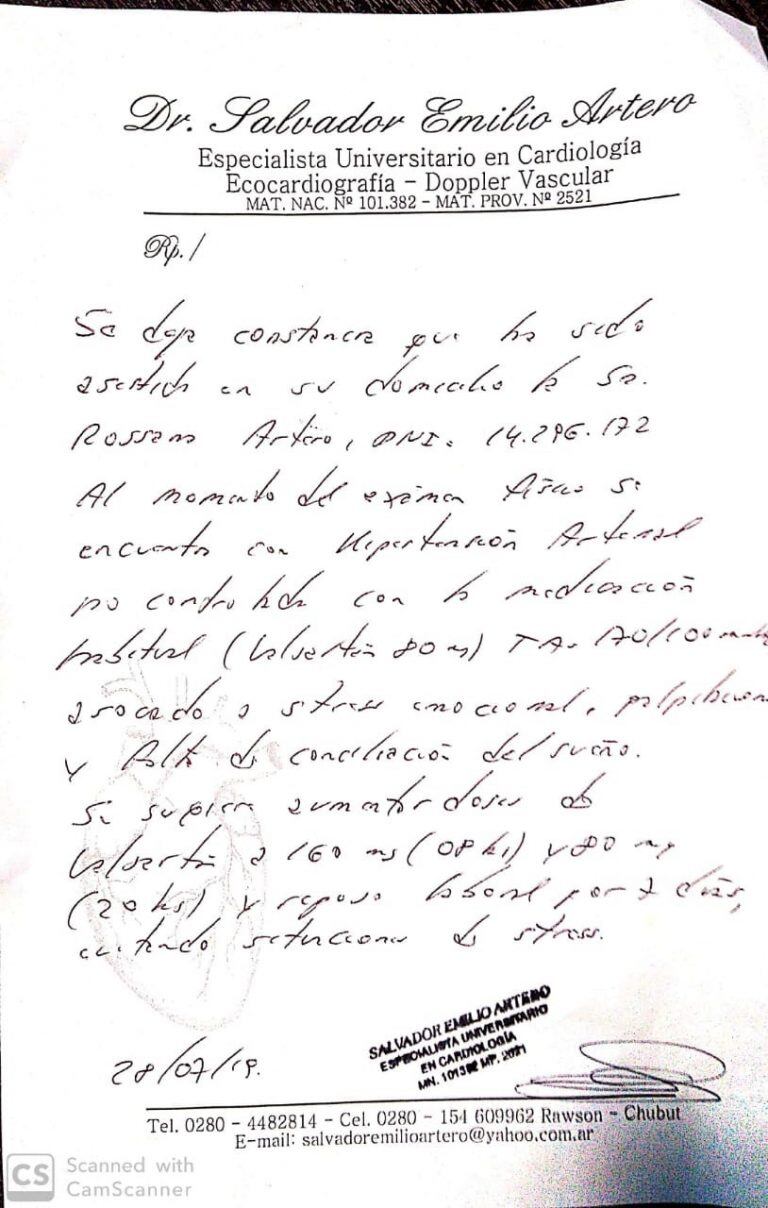 Dr. Salvador Emilio Artero
Especialista Universitario en Cardiología
Ecocardiografía - Doppler Vascular
MAT. NAC. Nº 101.382 - MAT. PROV. Nº 2521
Rp./
Se deja constancia que ha sido
asistida en su domicilio la Sra.
Rossana Artero, DNI. 14.296.172
Al momento del exámen físico se
encuentra con Hipertensión Arterial
no controlada con la medicación
habitual (Valsartán 80 mg) TA. 170/100 mmHg
asociado a stress emocional, palpitaciones
y falta de conciliación del sueño.
Se sugiere aumentar dosis de
Valsartán a 160 mg (08 hs) y 80 mg
(20 hs) y reposo laboral por 7 días,
evitando situaciones de stress.
28/07/19.
SALVADOR EMILIO ARTERO
ESPECIALISTA UNIVERSITARIO
EN CARDIOLOGÍA
MN. 101382 MP. 2521
Tel. 0280 - 4482814 - Cel. 0280 - 154 609962 Rawson - Chubut
E-mail: salvadoremilioartero@yahoo.com.ar
CS Scanned with
CamScanner